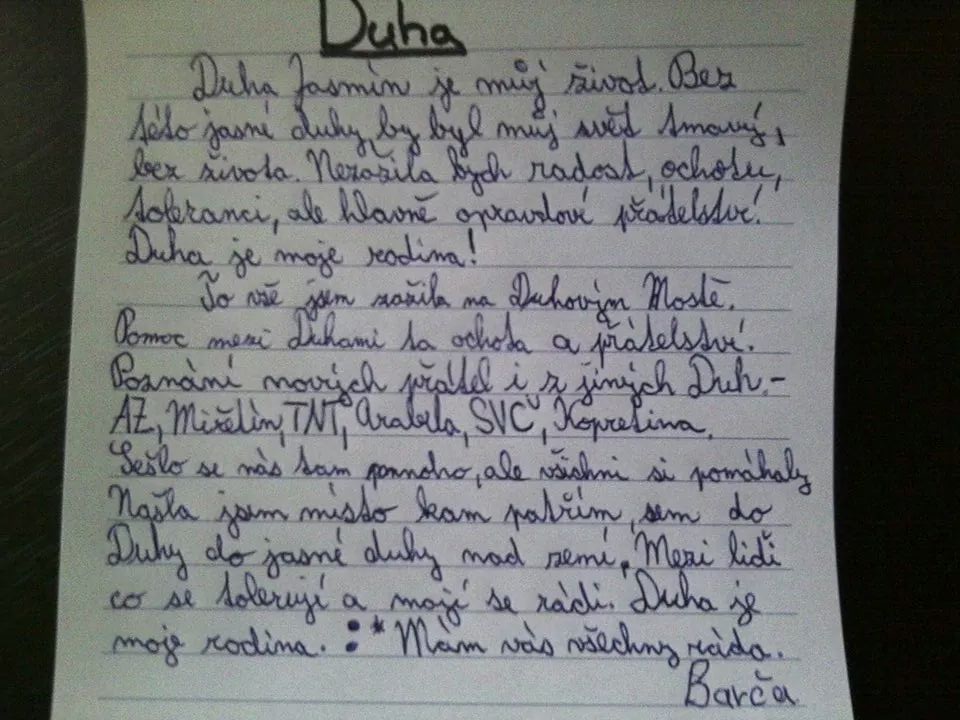 Duha
Duha Jasmín je můj život. Bez
této jasné duhy by byl můj svět tmavý,
bez života. Nezažila bych radost, ochotu,
toleranci, ale hlavně opravdové přátelství!
Duha je moje rodina!
To vše jsem zažila na Duhovým Mostě.
Pomoc mezi Duhami ta ochota a přátelství.
Poznání nových přátel i z jiných Duh.-
AŽ, Miželín, TNT, Arabela, SVČ, Kopretina.
Sešlo se nás tam pomnoho, ale všichni si pomáhaly
Našla jsem místo kam patřím, sem do
Duhy do jasné duhy nad zemí. Mezi lidi
co se tolerují a mají se rádi. Duha je
moje rodina. :* Mám vás všechny ráda.
Barča